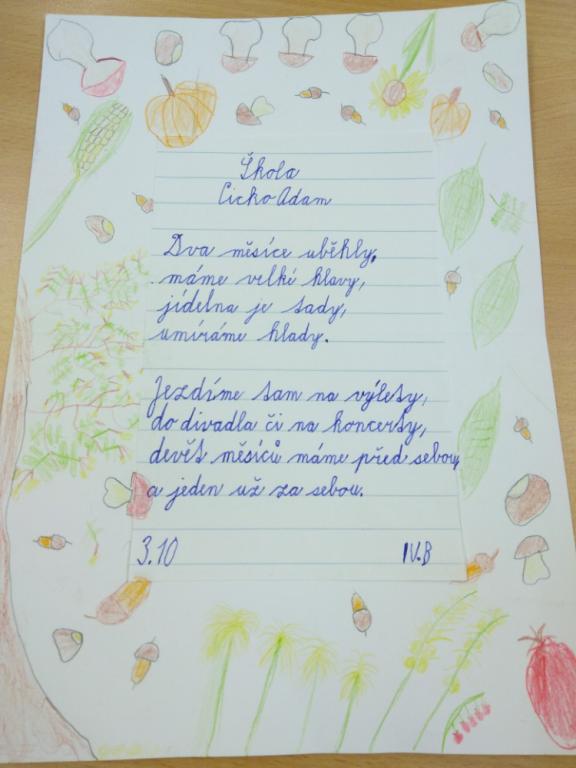 Škola
Cicko Adam
Dva měsíce uběhly,
máme velké hlavy,
jídelna je tady,
umíráme hlady.
Jezdíme tam na výlety,
do divadla či na koncerty,
devět měsíců máme před sebou,
a jeden už za sebou.
3.10 IV.B